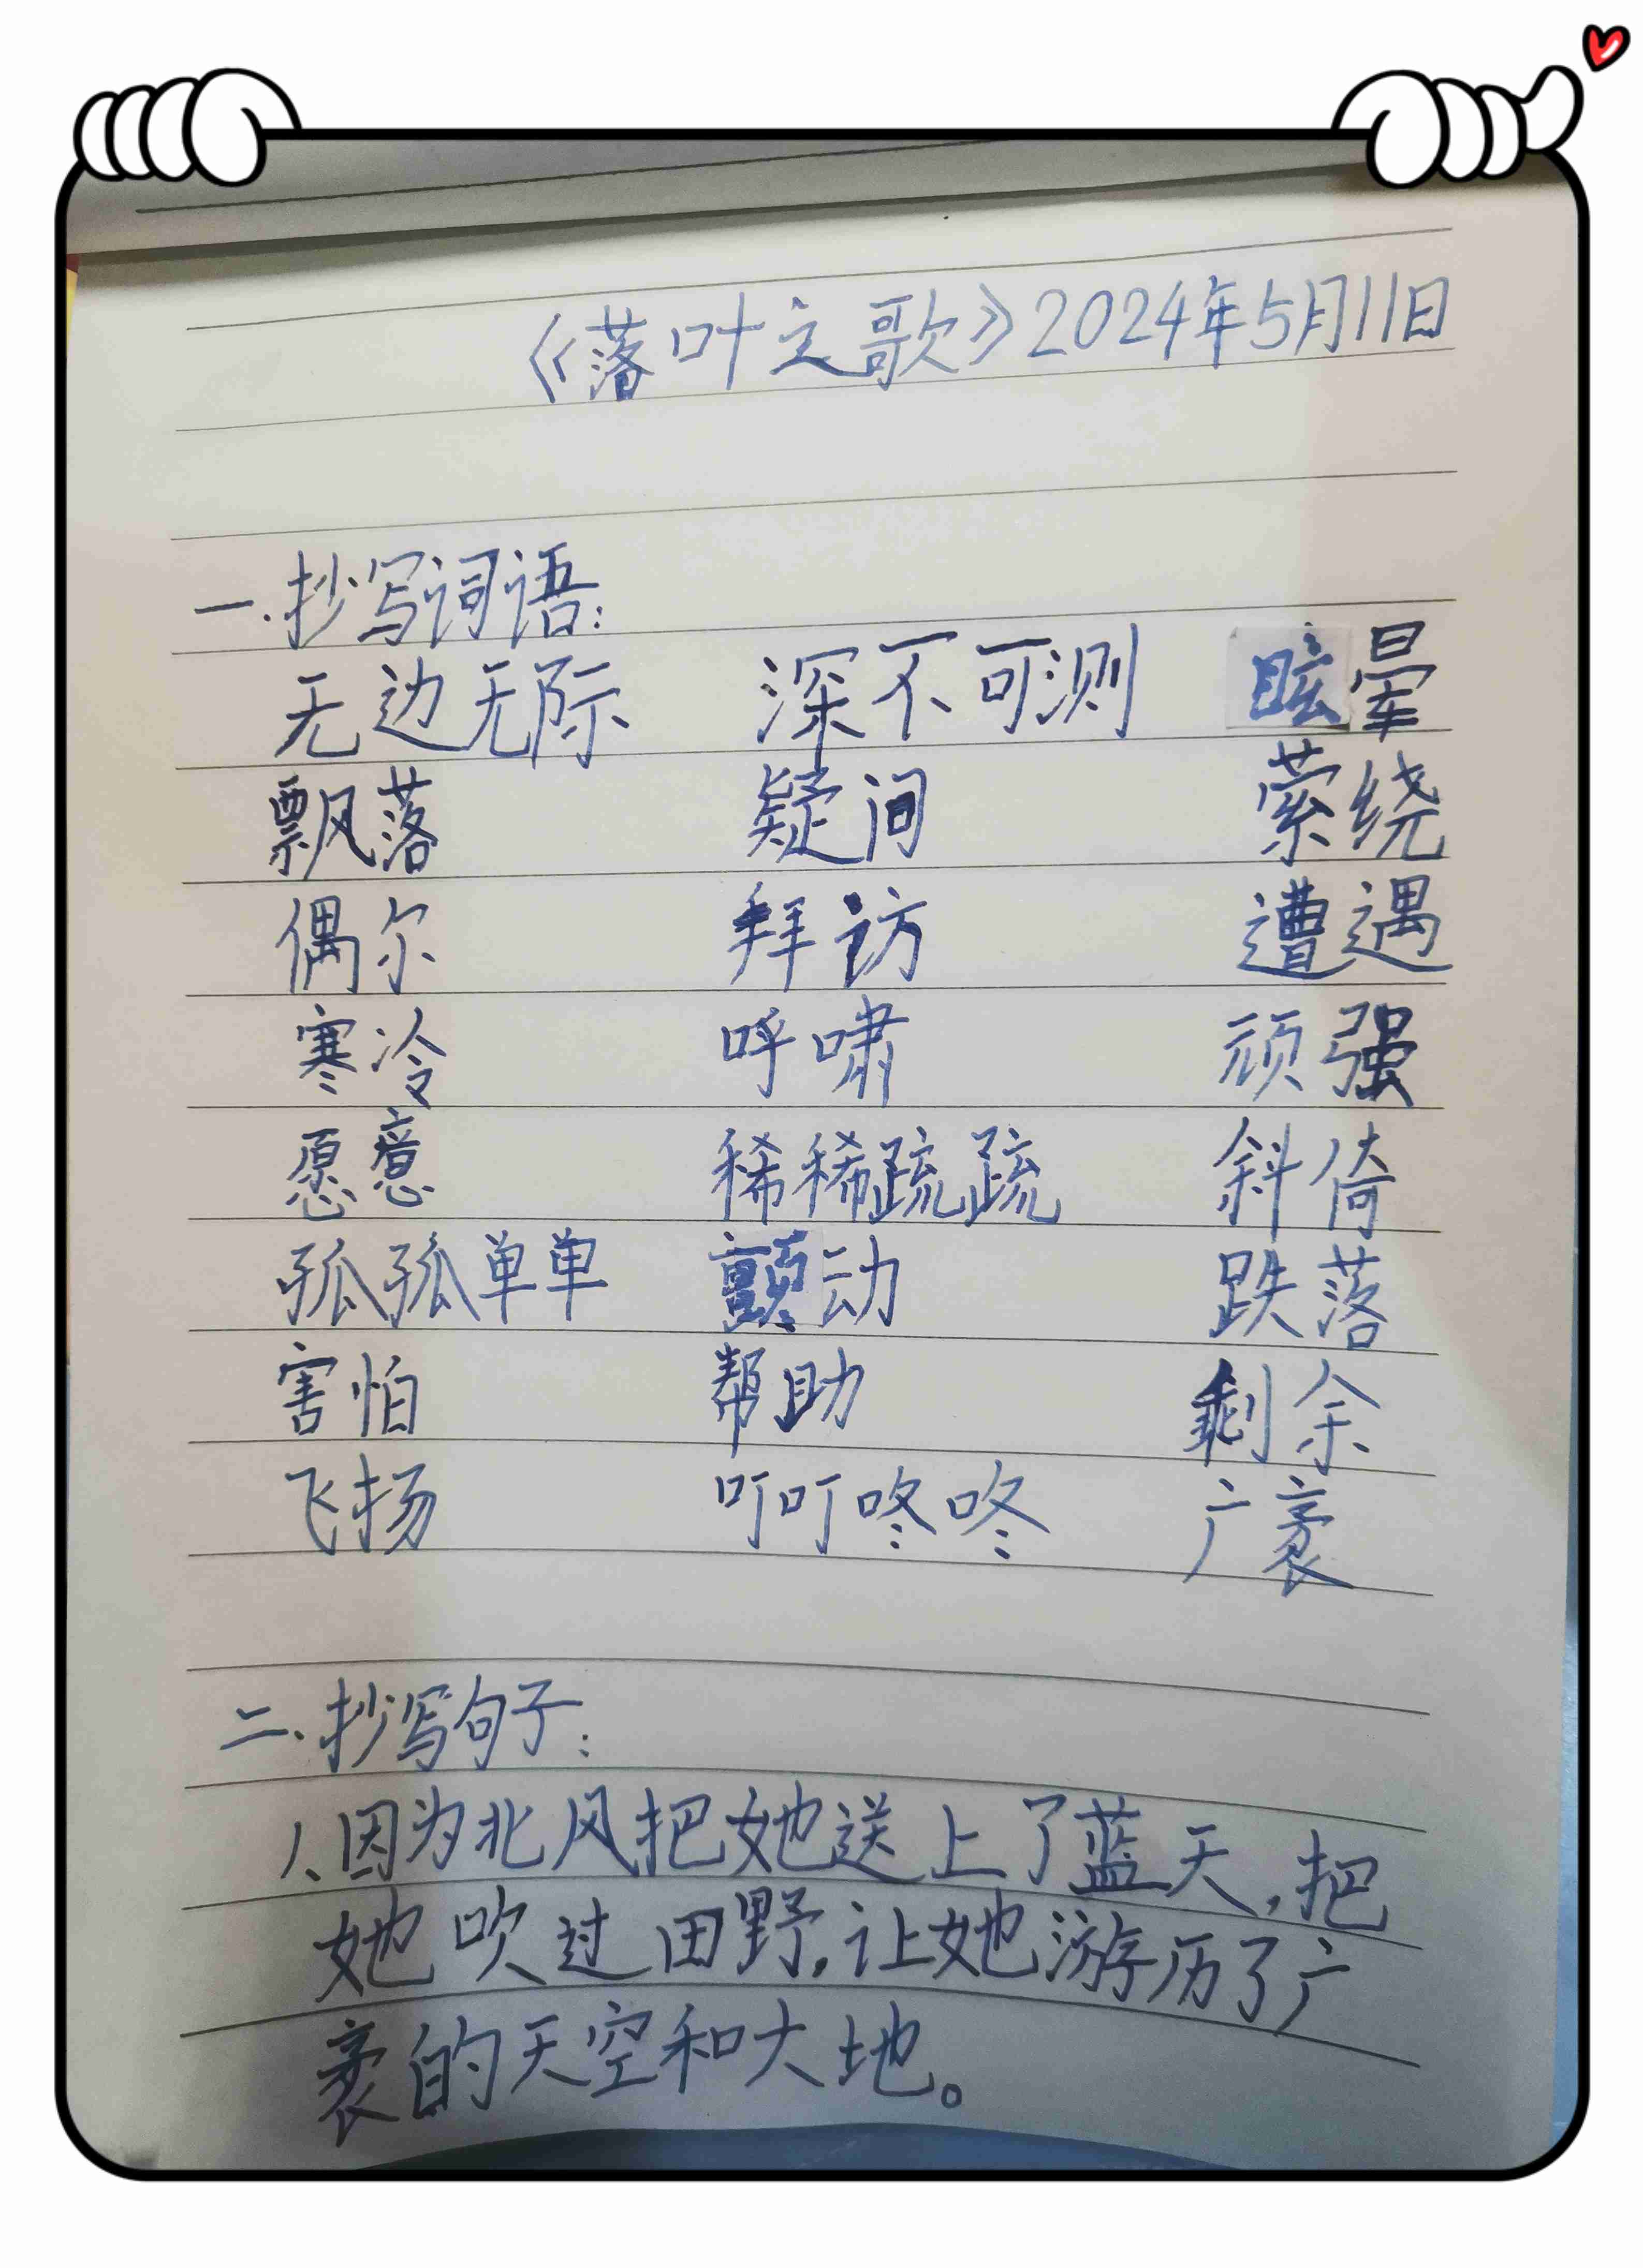 《落叶之歌》2024年5月11日
一.抄写词语:
无边无际 深不可测 眩晕
飘落 疑问 萦绕
偶尔 拜访 遭遇
寒冷 呼啸 顽强
愿意 稀稀疏疏 斜倚
孤孤单单 颤动 跌落
害怕 帮助 剩余
飞扬 叮叮咚咚 广袤
二、抄写句子:
1、因为北风把她送上了蓝天,把
她吹过田野,让她游历了广
袤的天空和大地。